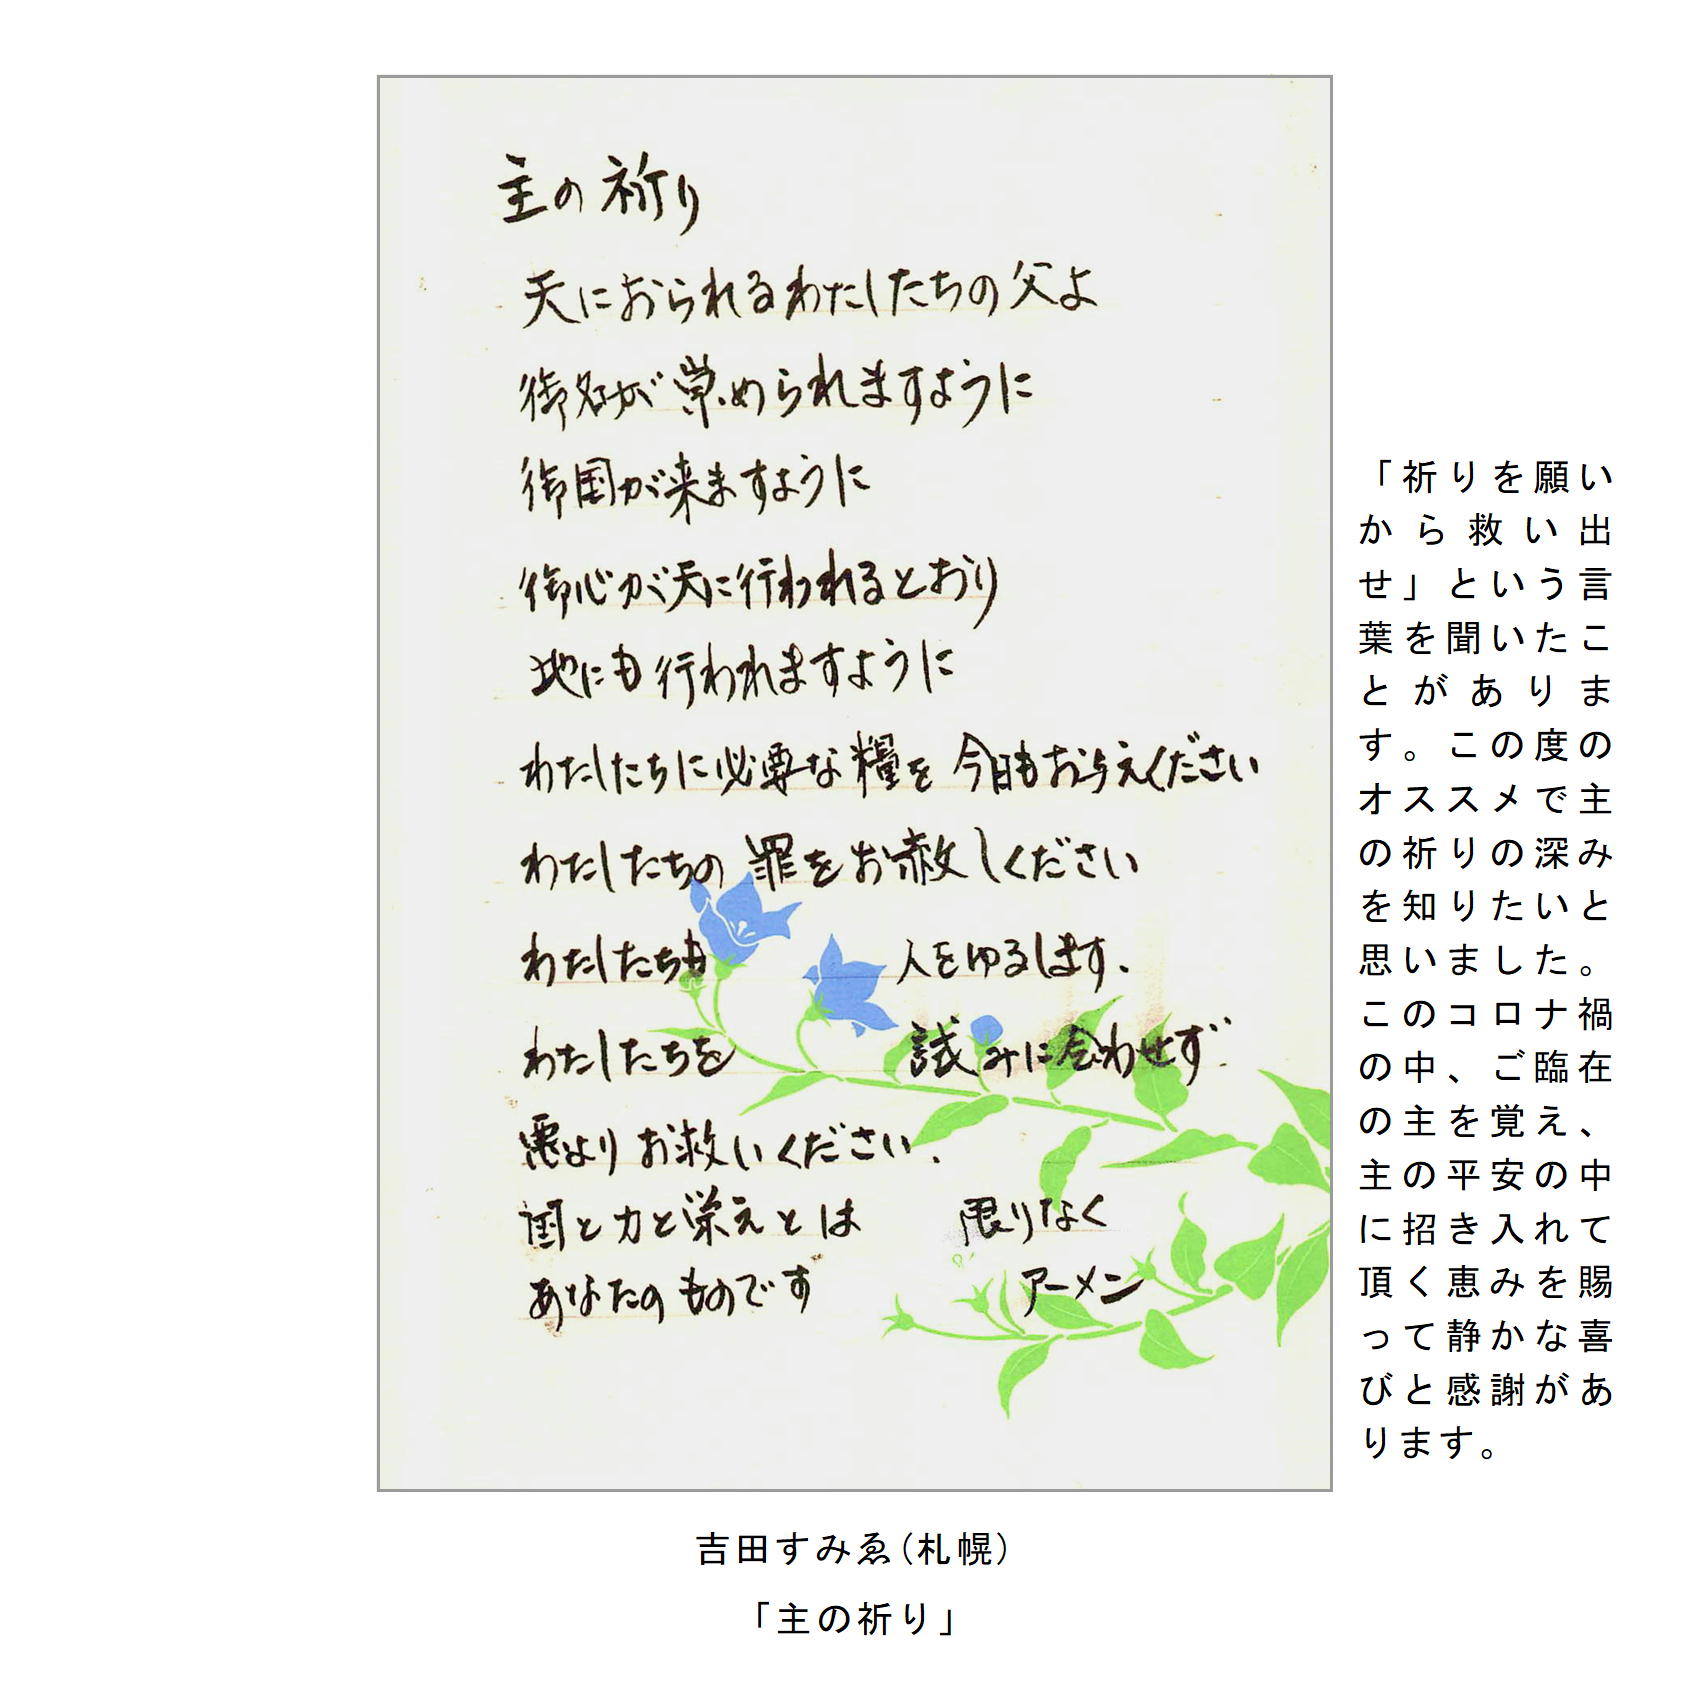 主の祈り
天におられるわたしたちの父よ
御名が崇められますように
御国が来ますように
御心が天に行われるとおり
地にも行われますように
わたしたちに必要な糧を今日もお与えください
わたしたちの罪をお赦しください
わたしたちも 人をゆるします.
わたしたちを 試みに会わせず.
悪よりお救いください.
国と力と栄えとは 限りなく
あなたのものです アーメン
「祈りを願い
から救い出
せ」という言
葉を聞いたこ
とがありま
す。この度の
オススメで主
の祈りの深み
を知りたいと
思いました。
このコロナ禍
の中、ご臨在
の主を覚え、
主の平安の中
に招き入れて
頂く恵みを賜
って静かな喜
びと感謝があ
ります。
吉田すみゑ(札幌)
「主の祈り」